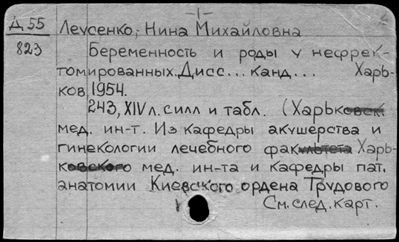 -1-
Д 55 Леусенко, Нина Михайловна
823 Беременность и роды у нефрек-
томированных. Дисс... канд... Харь-
ков, 1954.
243, XIV л. с илл и табл. (Харьковск.
мед. ин-т. Из кафедры акушерства и
гинекологии лечебного факультета Харь-
ковского мед. ин-та и кафедры пат.
анатомии Киевского ордена Трудового
См. след. карт.